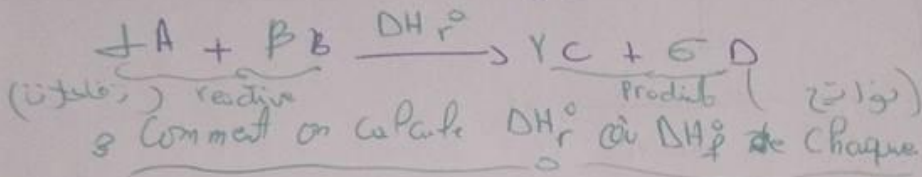 αA + βB → DH r° γC + δD
(متفاعلات) reactive Produit (نواتج)
Comment on calcule DH r° où DH f° de chaque